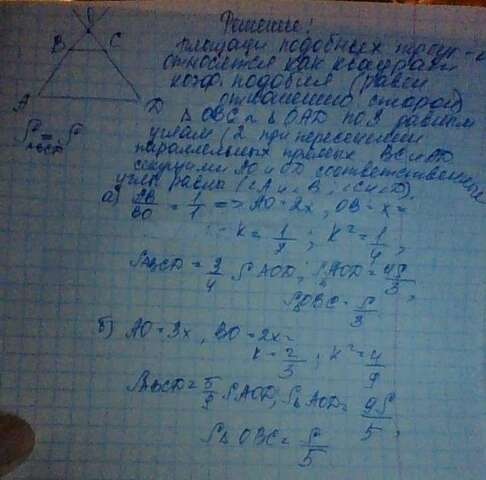 Решение:
O
площади подобных треуг-в
B C
относятся как квадраты
коэф. подобия (равен
отношению сторон)
A D
△ OBC ~ △ OAD по 3 равным
S ABCD = S
углам (2 при пересечении
параллельных прямых BC и AD
секущими AO и OD соответственные
углы равны (∠A и ∠B, ∠C и ∠D).
а) AB/BO = 1/1 => AO = 2x, OB = x =
k = 1/2; k² = 1/4,
S ABCD = 3/4 S AOD, S△AOD = 4S/3,
S△OBC = S/3
б) AO = 3x, BO = 2x =
k = 2/3; k² = 4/9
S ABCD = 5/9 S AOD; S△AOD = 9S/5,
S△OBC = S/5